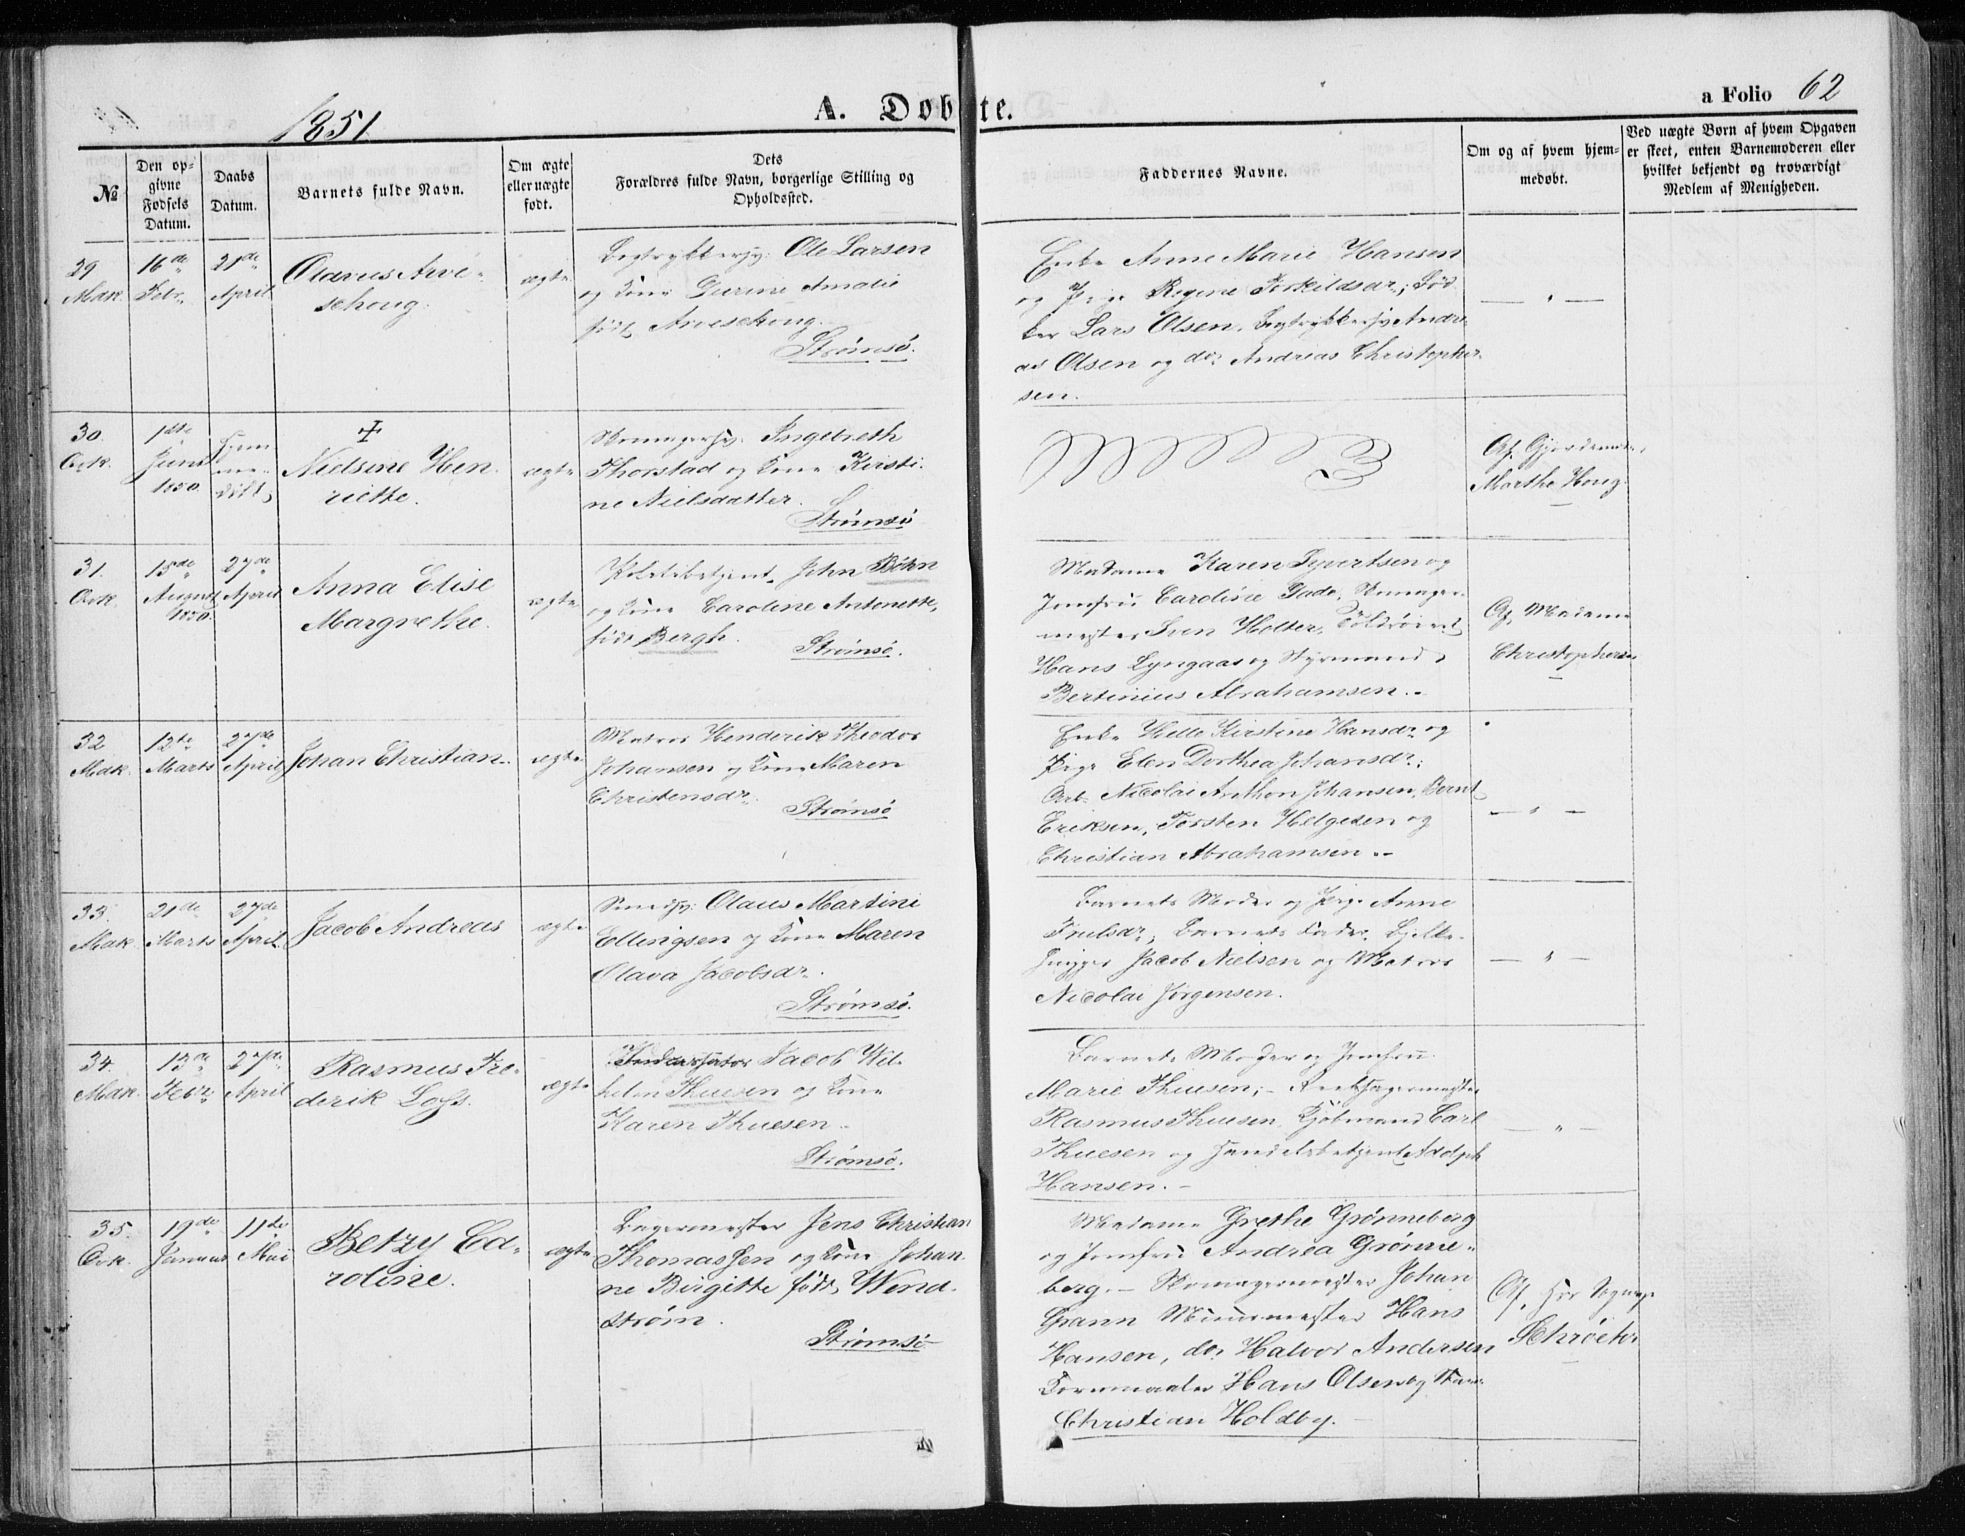 1851
A. Døbte.
a Folio 62
№
Den op-
givne
Fødsels
Datum.
Daabs
Datum.
Barnets fulde Navn.
Om ægte
eller uægte
født.
Dets
Forældres fulde Navn, borgerlige Stilling og
Opholdssted.
Faddernes Navne.
Om og af hvem hjem-
medøbt.
Ved uægte Børn af hvem Opgaven
er skeet, enten Barnemoderen eller
hvilket bekjendt og troværdigt
Medlem af Menigheden.
29
Mdk.
16de
Febr.
21de
April
Olavus Arve-
schoug.
ægte
Bogtrykkersv. Ole Larsen
og Kone Gurine Amalie
født Arveschoug.
Strømsø.
Enke Anne Marie Hansen
og Pige Regine Torkildsdr; Bød-
ker Lars Olsen, Bogtrykkersv Andre-
as Olsen og do. Andreas Christopher-
sen.
— " —
30.
Qvk.
1ste
Juni
1850
Hjem
me-
døbt,
Nielsine Hen-
riette.
ægte
Skomagersv. Ingebreth
Thorstad og Kone Kirsti-
ne Nielsdatter.
Strømsø
Af Gjordemoder
Marthe Houg.
31.
Qvk.
15de
August
1850.
27de
April
Anna Elise
Margrethe.
ægte
Politibetjent John Bøhn
og Kone Caroline Antonette,
født Bergh.
Strømsø.
Madame Karen Syvertsen og
Jomfru Caroline Gade, Skomager-
mester Sven Holter, Toldrører
Hans Lyngaas og Styrmand
Bertinius Abrahamsen.
Af Madame
Christophersen
32
Mdk.
12te
Marts
27de
April
Johan Christian.
ægte
Matros Henderik Theodor
Johansen og Kone Maren
Christensdr.
Strømsø
Enke Helle Kirstine Hansdr og
Pige Elen Dorthea Johansdr;
Arb. Nicolai Anthon Johansen, Bernt
Eriksen, Torsten Helgesen og
Christian Abrahamsen.
— " —
33.
Mdk.
21de
Marts
27de
April
Jacob Andreas
ægte
Smedsv. Olaus Martini
Ellingsen og Kone Maren
Olava Jacobsdr.
Strømsø.
Barnets Moder og Pige Anne
Trulsdr; Barnets Fader, Bjelke-
hugger Jacob Nielsen og Matros
Nicolai Jørgensen.
— " —
34.
Mdk.
13de
Febr
27de
April
Rasmus Fre-
derik Loss.
ægte
Jacob Wil-
helm Thuesen og Kone
Karen Thuesen
Strømsø.
Barnets Moder og Jomfru
Marie Thuesen; -
Rasmus Thuesen, Kjøbmand Carl
Thuesen og Handelsbetjent Adolph
Hansen. -
— " —
35.
Qvk.
19de
Januar
11te
Mai
Betzy Ca-
roline.
ægte
Bagermester Jens Christian
Thomassen og Kone Johan-
ne Birgitte født Wend-
strøm.
Strømsø
Madame Grethe Grønneberg
og Jomfru Andrea Grønne-
berg. - Skomagermester Johan
Grann Muurmester Hans
Hansen, do. Halvor Andersen
Kornmaaler Hans Olsen og
Christian Holdby.
Af Hr
Schrøeter